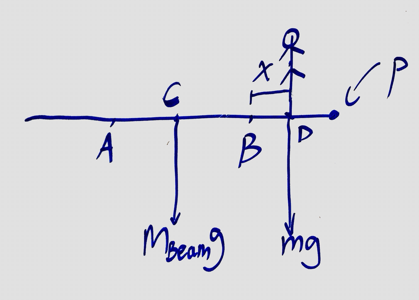 P
x
C
A
B
D
MBeamg
mg